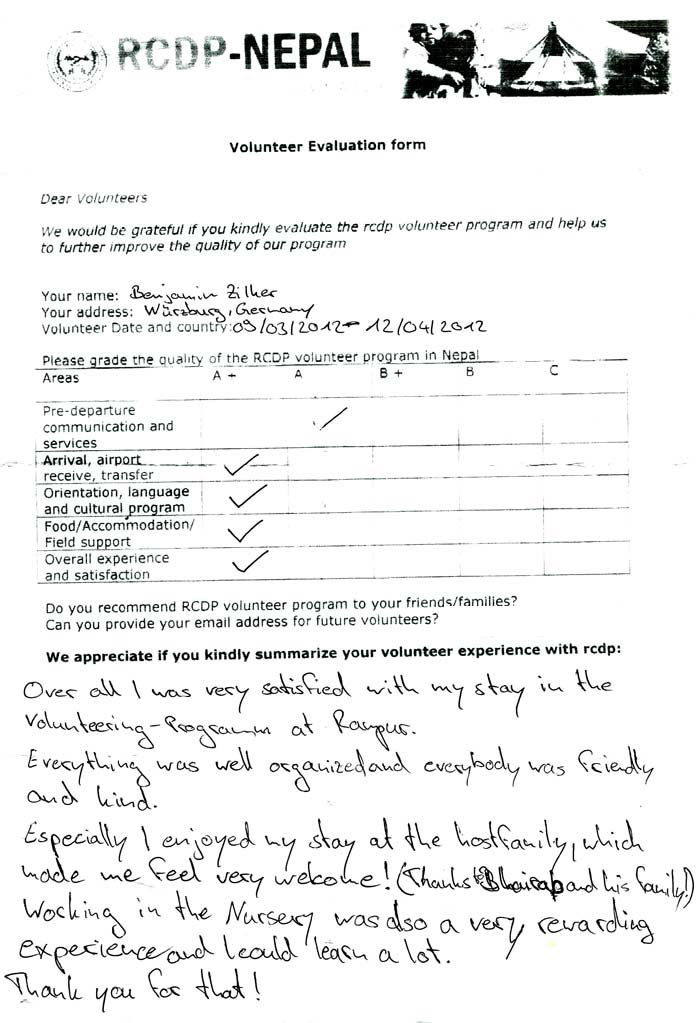 RCDP-NEPAL
Volunteer Evaluation form
Dear Volunteers
We would be grateful if you kindly evaluate the rcdp volunteer program and help us
to further improve the quality of our program
Your name: Benjamin Zilker
Your address: Würzburg, Germany
Volunteer Date and country: 09/03/2012 - 12/04/2012
Please grade the quality of the RCDP volunteer program in Nepal
Areas A + A B + B C
Pre-departure
communication and
services
Arrival, airport
receive, transfer
Orientation, language
and cultural program
Food/Accommodation/
Field support
Overall experience
and satisfaction
Do you recommend RCDP volunteer program to your friends/families?
Can you provide your email address for future volunteers?
We appreciate if you kindly summarize your volunteer experience with rcdp:
Over all I was very satisfied with my stay in the
Volunteering-Programm at Rampur.
Everything was well organized and everybody was friendly
and kind.
Especially I enjoyed my stay at the hostfamily, which
made me feel very welcome! (Thanks to Bhairab and his family!)
Working in the Nursery was also a very rewarding
experience and I could learn a lot.
Thank you for that!